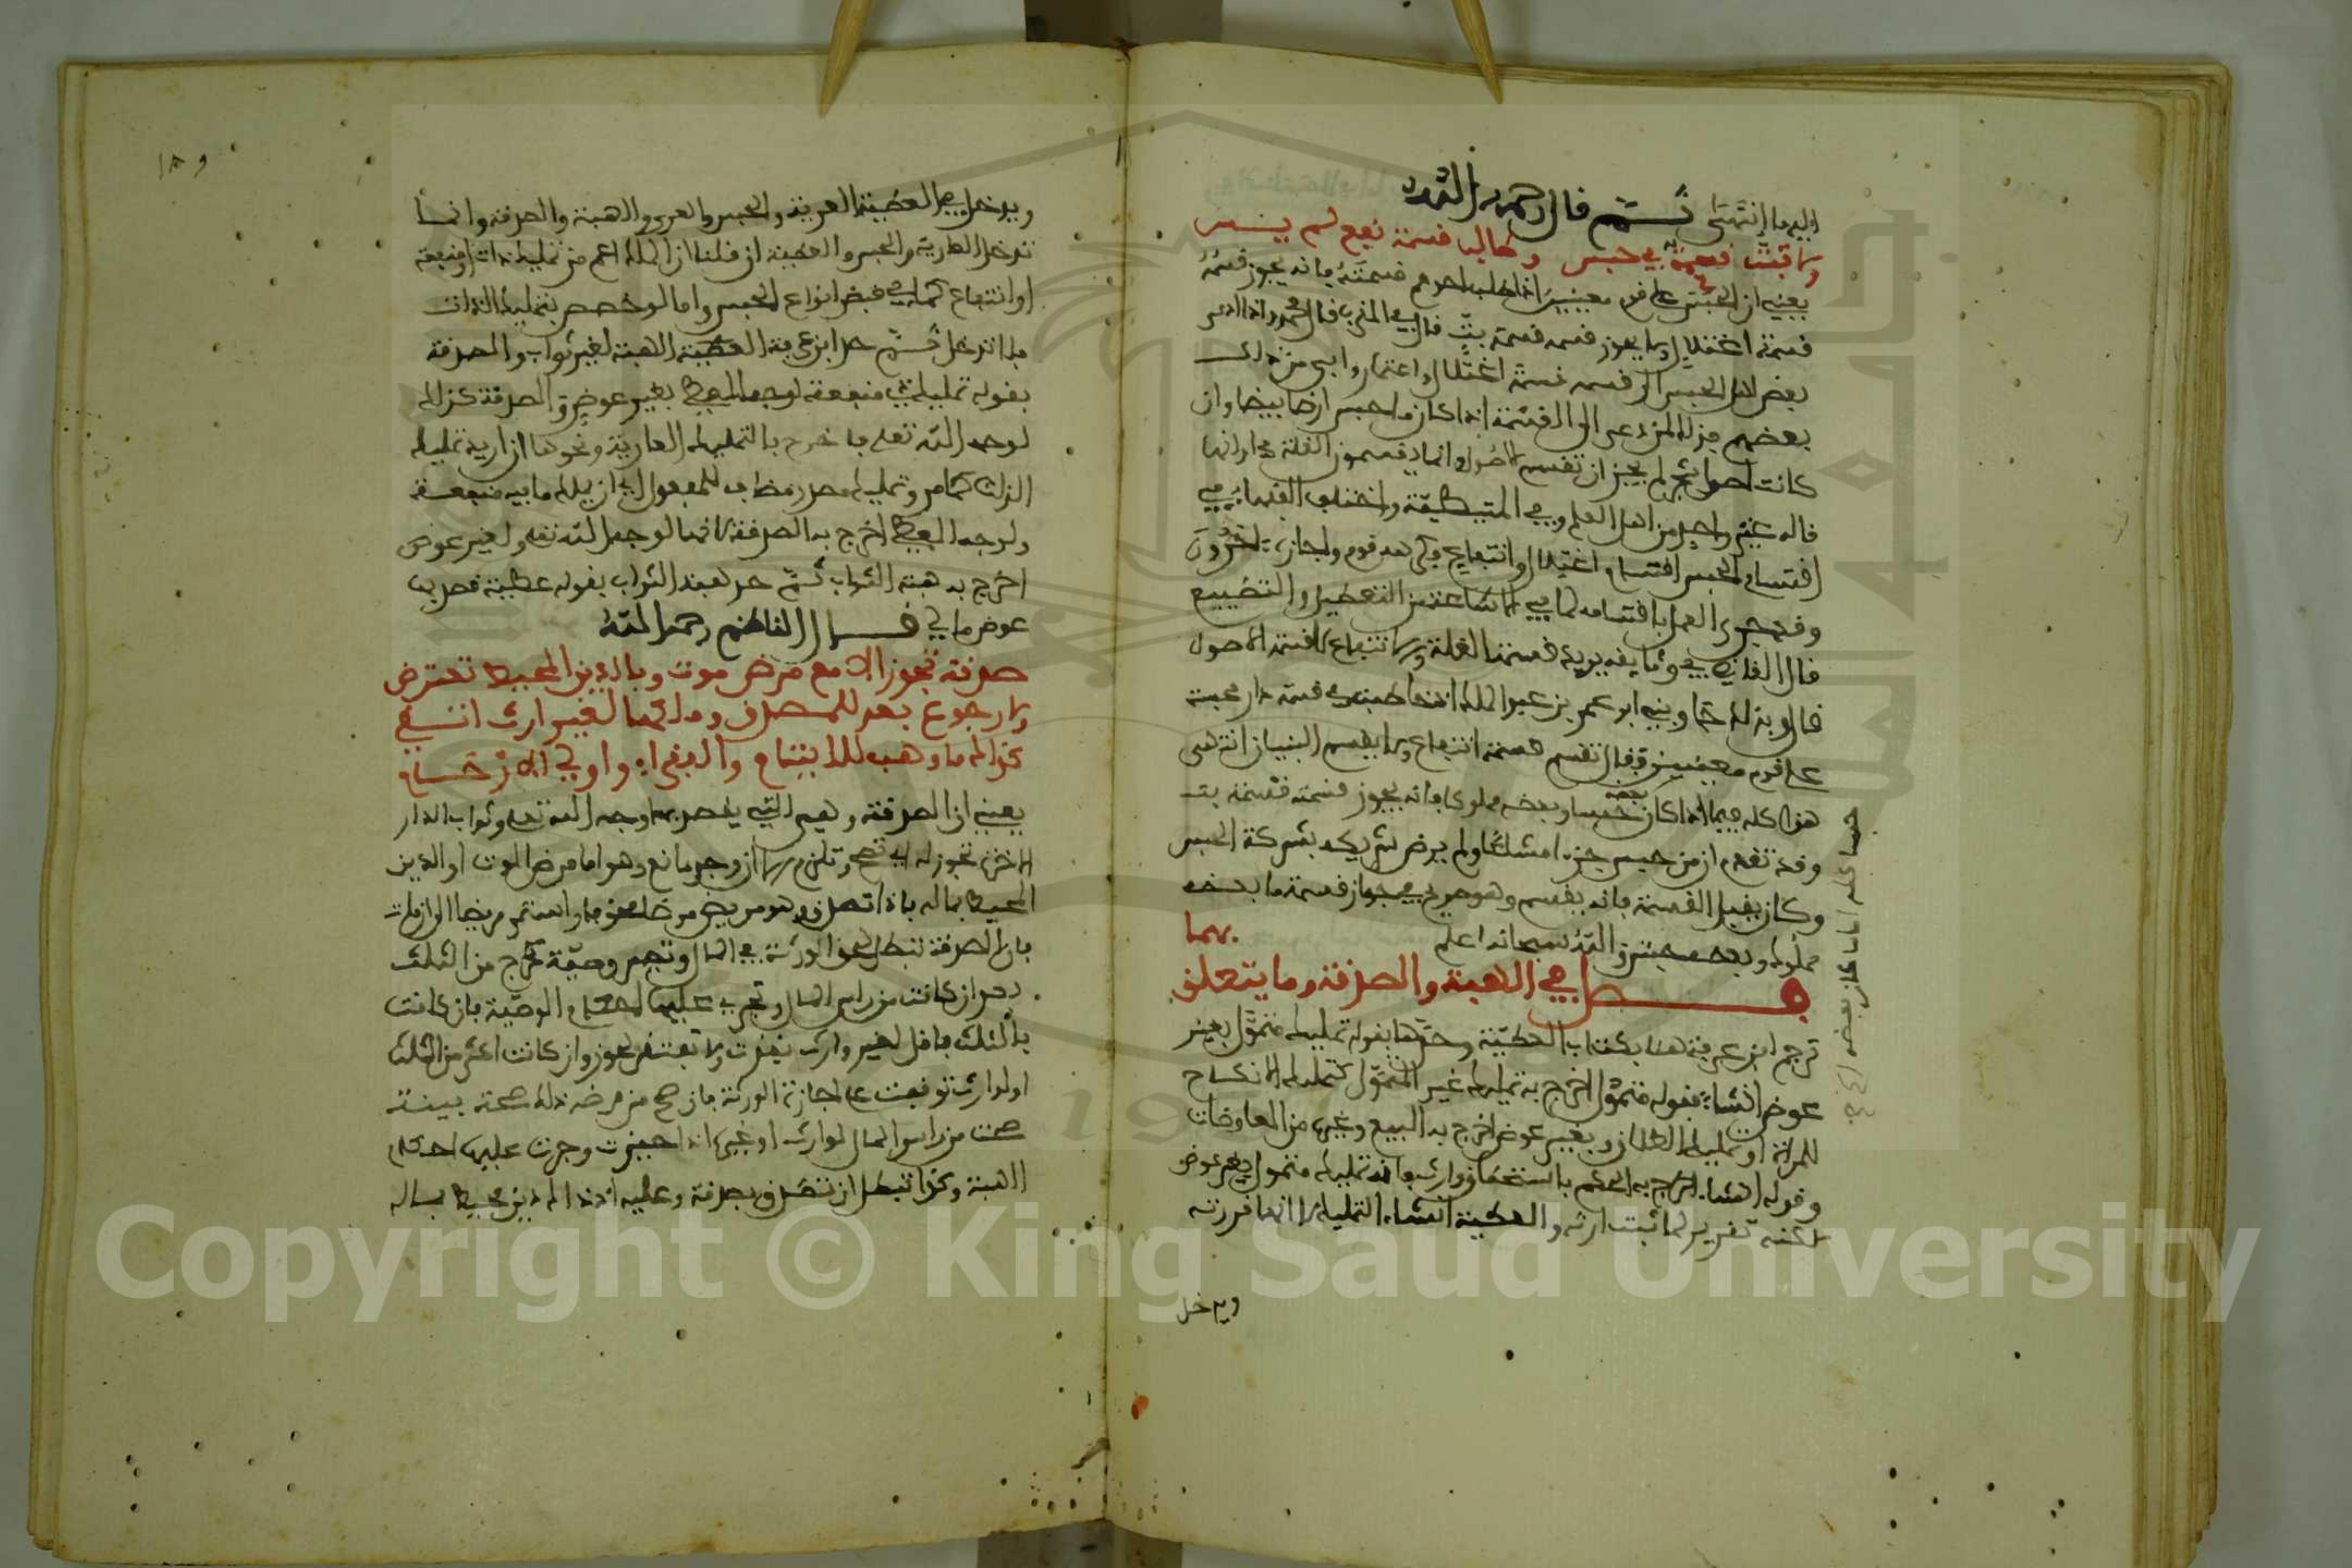 اليه ما انتهى ثم قال رحمه الله
ولا تبت قسمة في حبس وطالب قسمة نفع لم يحبس
يعني ان الحبس على قوم معينين اذا طلب احدهم قسمته فانه يجوز قسمه
قسمة اغتلال ولا يجوز قسمه قسمة بت قال في المقرب قال محمد واذا ادعى
بعض اهل الحبس الى قسمه قسمة اغتلال واعتمار وابى من ذلك
بعضهم فذلك لمن دعى الى القسمة اذا كان ما حبس ارضا بيضا وان
كانت اصول شجر لم يجز ان تقسم الاصول وانما يقسمون الغلة في اوانها
قاله غير واحد من اهل العلم وفي المتيطية واختلف الفقهاء في
اقتسام الحبس اقتسام اغتلال وانتفاع فكرهه قوم واجازه اخرون
وقد جرى العمل باقتسامه لما في الاشاعة من التعطيل والتضييع
قال القاضي في وثايقه يريد قسمة الغلة والانتفاع لا قسمة الاصول
قال وبذلك جاوبني ابو عمر بن عبد الملك اذ خاطبته في قسمة دار محبسة
على قوم معينين فقال تقسم قسمة انتفاع ولا يقسم البنيان انتهى
هذا كله فيما اذا كان بعضه حبسا وبعضه مملوكا فانه يجوز قسمته قسمة بت
وقد تقدم ان من حبس جزءا مشاعا ولم يرض شريكه بشركة الحبس
وكان يقبل القسمة فانه يقسم وهو صريح في جواز قسمة ما بعضه
مملوك وبعضه محبس والله سبحانه اعلم
فصل في الهبة والصدقة وما يتعلق بهما
ترجم ابن عرفة هنا بكتاب العطية وحدها بقوله تمليك متمول بغير
عوض انشاء فقوله متمول اخرج به تمليك غير المتمول كتمليك الانكاح
للمراة او تمليك الطلاق وبغير عوض اخرج به البيع وغيره من المعاوضات
وقوله انشاء اخرج به الحكم باستحقاق وارث فانه تمليك متمول بغير عوض
لكنه تقرير لما ثبت ارثه والعطية انشاء التمليك لا انها قررته
ويدخل
ويدخل في العطية العرية والحبس والعمرى والهبة والصدقة وانما
تدخل العارية والحبس والعطية ان قلنا ان الملك اعم من تمليك ذات او منفعة
او انتفاع كما في بعض انواع الحبس واما لو خصص بتمليك الذات
فلا تدخل ثم حد ابن عرفة العطية الهبة لغير ثواب والصدقة
بقوله تمليك ذي منفعة لوجه المعطى بغير عوض والصدقة كذلك
لوجه الله تعلى فاخرج بالتمليك العارية ونحوها ان اريد تمليك
الذات كما مر وتمليك مصدر مضاف للمفعول اي ان يملك ما فيه منفعة
ولوجه المعطى اخرج به الصدقة لانها لوجه الله تعلى ولغير عوض
اخرج به هبة الثواب ثم حد هبة الثواب بقوله عطية قصد بها
عوض مالي قال الناظم رحمه الله
صدقة تجوز الا مع مرض موت وبالدين المحيط تعترض
ولا رجوع بعد للمصدق وملكها لغير ارث اتق
كذاك ما وهب للايتام والفقراء واولي الارحام
يعني ان الصدقة وهي التي يقصد بها وجه الله تعلى وثواب الدار
الاخرة تجوز له اي تصح وتلزم الا ان وجد مانع وهو اما مرض الموت او الدين
المحيط بماله فاذا تصدق وهو مريض مرضا مخوفا واستمر مريضا الى ان مات
فان الصدقة تبطل لحق الورثة في المال وتصير وصية تخرج من الثلث
بعد ان كانت من راس المال وتجري عليها احكام الوصية فان كانت
بالثلث فاقل لغير وارث نفذت ولا تفتقر لحوز وان كانت اكثر من الثلث
او لوارث توقفت على اجازة الورثة فان صح من مرضه ذلك صحة بينة
صحت من راس المال لوارث او غيره اذا حيزت وجرت عليها احكام
الهبة وكذا تبطل ان تصدق بصدقة وعليه اذ ذاك دين محيط بماله
Copyright © King Saud University